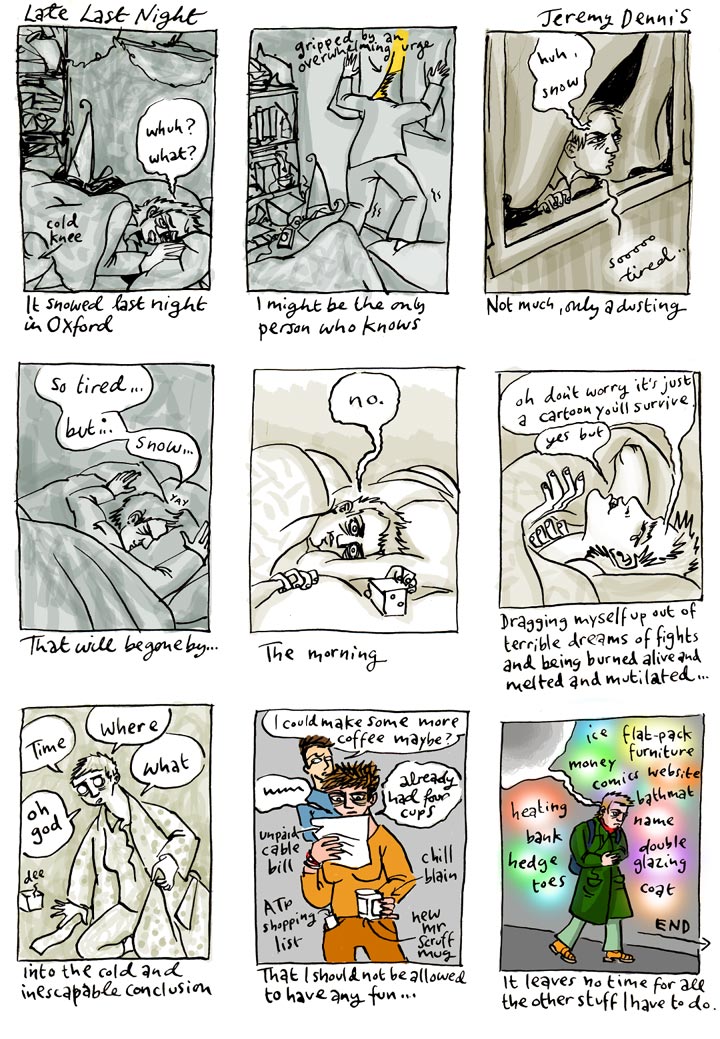 Late Last Night
Jeremy Dennis
whuh?
what?
cold
knee
It snowed last night
in Oxford
gripped by an
overwhelming urge
I might be the only
person who knows
huh,
snow
sooooo
tired..
Not much, only a dusting
So tired...
but...
snow...
YAY
That will be gone by...
no.
The morning
oh don't worry it's just
a cartoon you'll survive
yes but
Dragging myself up out of
terrible dreams of fights
and being burned alive and
melted and mutilated...
Time
where
what
oh
god
dee
into the cold and
inescapable conclusion
I could make some more
coffee maybe?
mmm
already
had four
cups
unpaid
cable
bill
chill
blain
shopping
list
new
mr
scruff
mug
That I should not be allowed
to have any fun...
ice
flat-pack
furniture
money
comics
website
bathmat
heating
name
bank
double
glazing
hedge
toes
coat
END
It leaves no time for all
the other stuff I have to do.